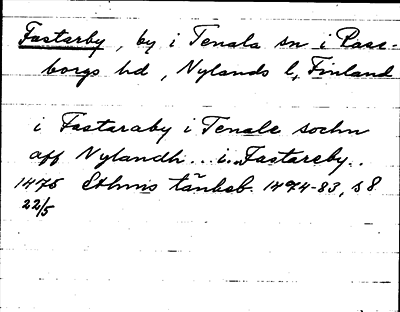 Fastarby, by i Tenala sn i Rase-
borgs hd, Nylands l, Finland
i Fastaraby i Tenale sochn
aff Nylandh .. i Fastareby ..
1475 Sthms tänkeb. 1474-83, s 8
22/5